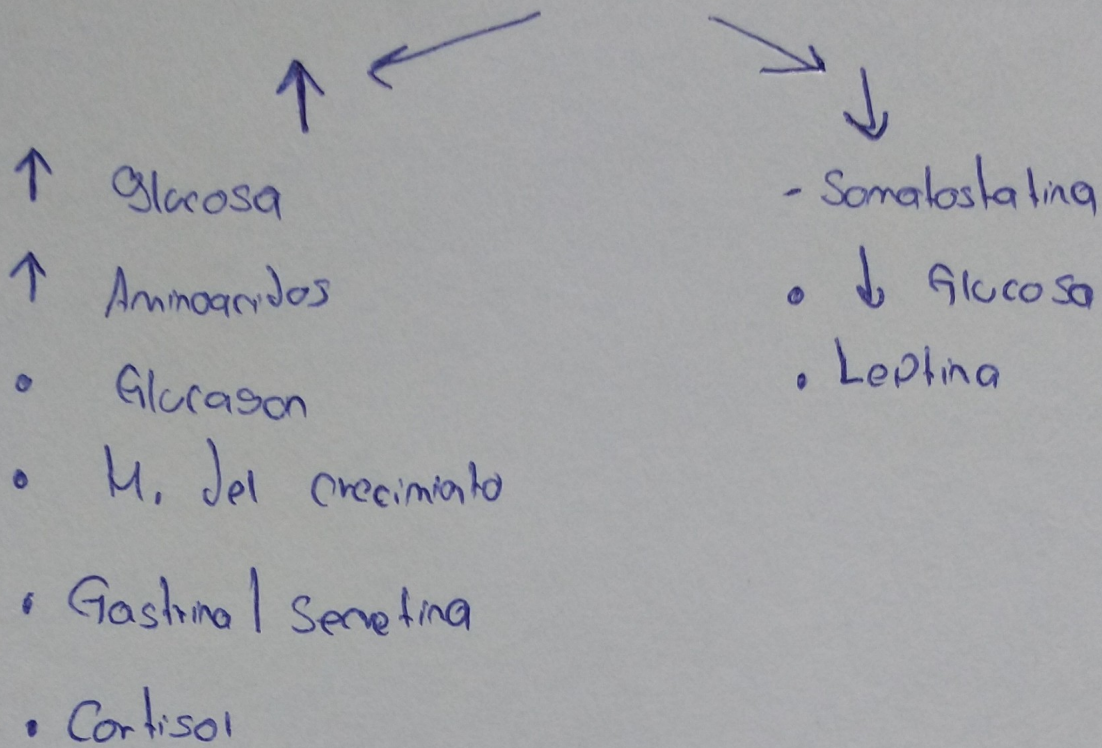 ↑
↑ Glucosa
↑ Aminoacidos
• Glucagon
• H. del crecimiento
• Gastrina / Secretina
• Cortisol
↓
- Somatostatina
• ↓ Glucosa
• Leptina